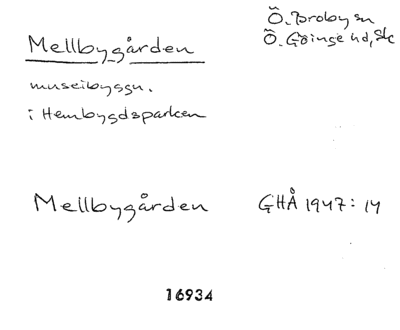 Ö. Broby sn
Mellbygården
Ö. Göinge hd, Sk
museibyggn.
i Hembygdsparken
Mellbygården GHÅ 1947: 14
16934